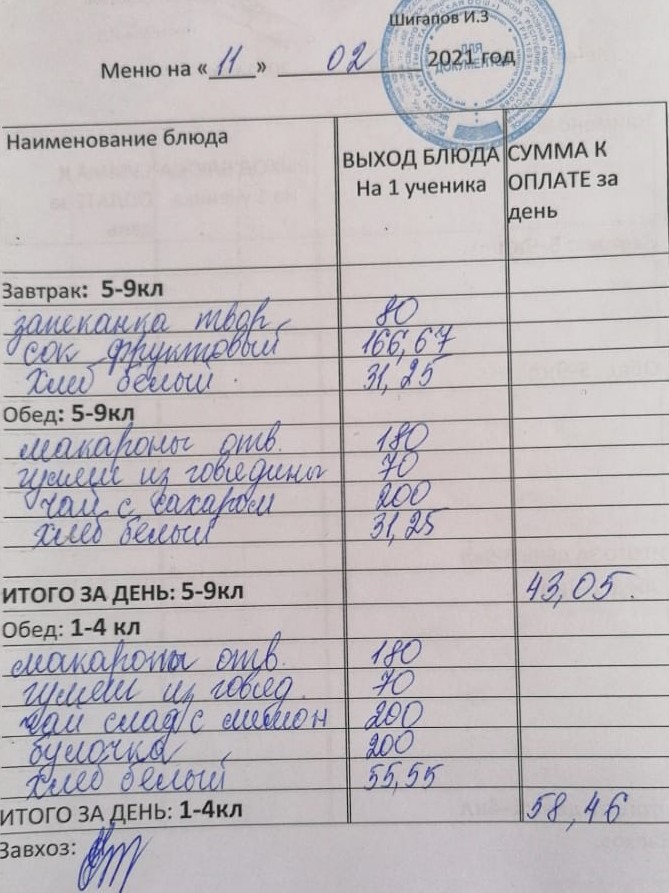 Шигапов И.З
Меню на «11» 02 2021 год
ДЛЯ ДОКУМЕНТОВ
Наименование блюда ВЫХОД БЛЮДА На 1 ученика СУММА К ОПЛАТЕ за день
Завтрак: 5-9кл
запеканка твор. 80
сок фруктовый 166,67
Хлеб белый 31,25
Обед: 5-9кл
макароны отв. 180
гуляш из говядины 70
чай с сахаром 200
хлеб белый 31,25
ИТОГО ЗА ДЕНЬ: 5-9кл 43,05
Обед: 1-4 кл
макароны отв. 180
гуляш из говяд. 70
чай слад с лимон 200
булочка 200
хлеб белый 55,55
ИТОГО ЗА ДЕНЬ: 1-4кл 58,46
Завхоз: